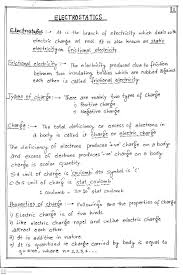 ELECTROSTATICS
Electrostatics :→ It is the branch of electricity which deals with
electric charge at rest. It is also known as static
electricity or frictional electricity.
Frictional electricity :→ The electricity produced due to friction
between two insulating bodies which are rubbed against
each other is called frictional electricity
Types of charge :→ There are mainly two types of charge
① Positive charge
② Negative charge
Charge :→ The total deficiency or excess of electrons in
a body is called a charge or electric charge.
The deficiency of electrons produces +ve charge on a body
and excess of electrons produces -ve charge on a body.
charge is scalar quantity
S.I unit of charge is coulomb its symbol is 'C'
C.G.S unit of charge is stat coulomb
1 coulomb = 3×10⁹ stat coulomb
Properties of charge :→ Followings are the properties of charge
i) Electric charge is of two kinds
ii) like electric charge repel and unlike electric charge
attract each other.
iii) It is additive in nature
iv) It is quantised ie charge carried by body is equal to
q=±ne, where n=1,2,3,...